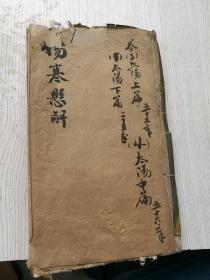 傷寒懸解
卷四太陽上篇 五十三章
太陽下篇 二十五章
太陽中篇 五十六章